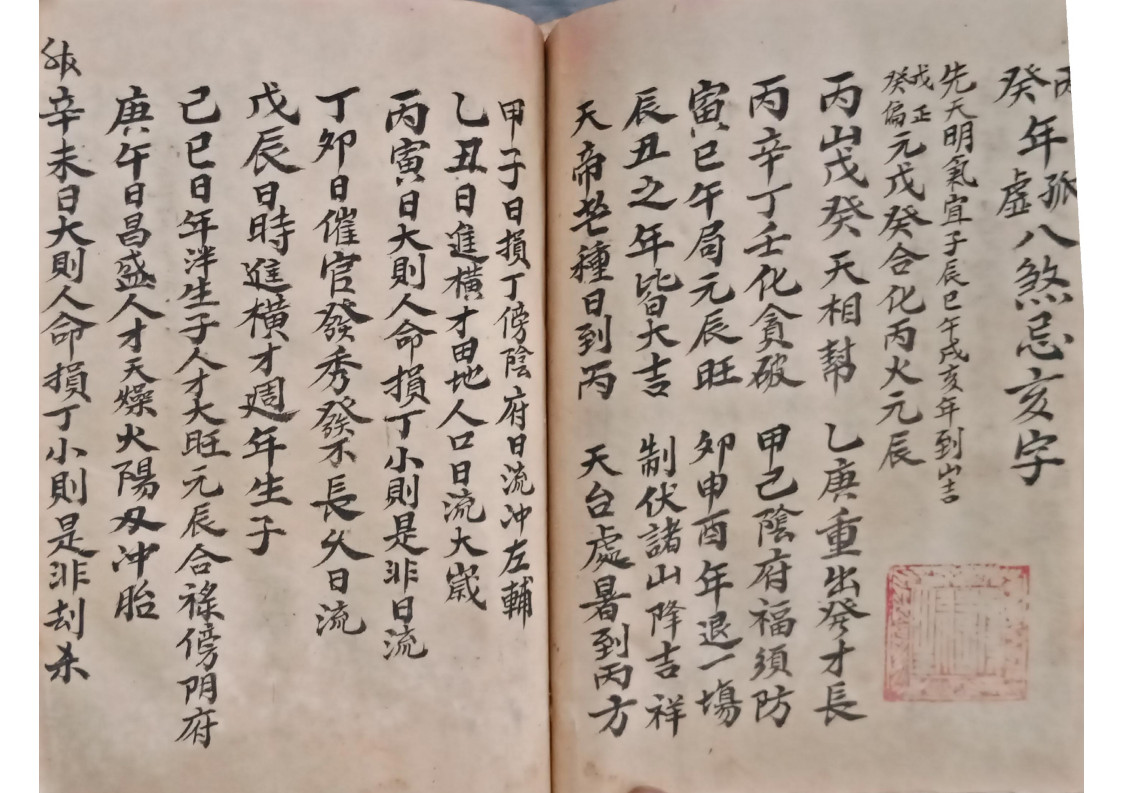 癸年孤虛八煞忌亥字
先天明氣宜子辰巳午戌亥年到山吉
戊正癸偏元戊癸合化丙火元辰
丙山戊癸天相幇 乙庚重出発才長
丙辛丁壬化貪破 甲己陰府福須防
寅巳午局元辰旺 夘申酉年退一塲
辰丑之年皆大吉 制伏諸山降吉祥
天帝芒種日到丙 天台處暑到丙方
甲子日損丁傍陰府日流冲左輔
乙丑日進橫才田地人口日流大嵗
丙寅日大則人命損丁小則是非日流
丁夘日催官發秀發不長久日流
戊辰日時進橫才週年生子
己巳日年泮生子人才大旺元辰合祿傍阴府
庚午日昌盛人才天燥火陽刄冲胎
辛未日大則人命損丁小則是非刦杀